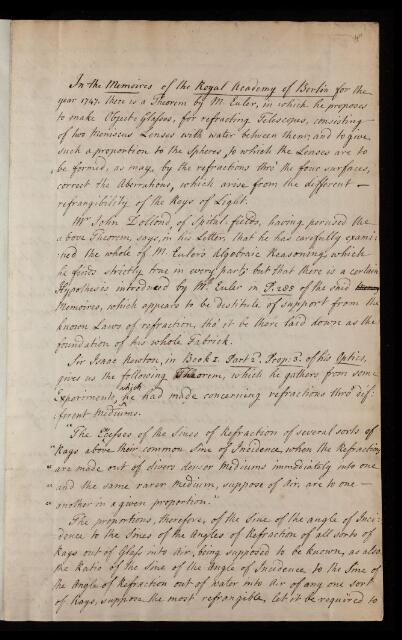 In the Memoires of the Royal Academy of Berlin for the
year 1747. there is a Theorem by M. Euler, in which he proposes
to make Object-Glasses, for refracting Telescopes, consisting
of two Meniscus Lenses with water between them; and to give
such a proportion to the Spheres, to which the Lenses are to
be formed, as may, by the refractions thro' the four surfaces,
correct the Aberrations, which arise from the different
refrangibility of the Rays of Light.
Mr. John Dollond of Spital-fields, having perused the
above Theorem, says, in his Letter, that he has carefully exami-
ned the whole of M. Euler's Algebraic Reasoning, which
he finds strictly true in every part; but that there is a certain
Hypothesis introduced by M. Euler in P. 285 of the said
Memoires, which appears to be destitute of support from the
known Laws of refraction, tho' it be there laid down as the
foundation of his whole Fabrick.
Sir Isaac Newton, in Book 1. Part 2. Prop: 3. of his Optics,
gives us the following Theorem, which he gathers from some
Experiments, which he had made concerning refractions thro' dif-
ferent Mediums.
"The Excesses of the Sines of Refraction of several sorts of
"Rays above their common Sine of Incidence, when the Refractions
"are made out of divers denser Mediums immediately into one
"and the same rarer Medium, suppose of Air, are to one
"another in a given proportion."
The proportions, therefore, of the Sine of the angle of Inci-
dence to the Sines of the Angles of Refraction of all sorts of
Rays out of Glass into Air, being supposed to be known, as also
the Ratio of the Sine of the Angle of Incidence to the Sine of
the Angle of Refraction out of Water into Air of any one sort
of Rays, suppose the most refrangible, let it be required to